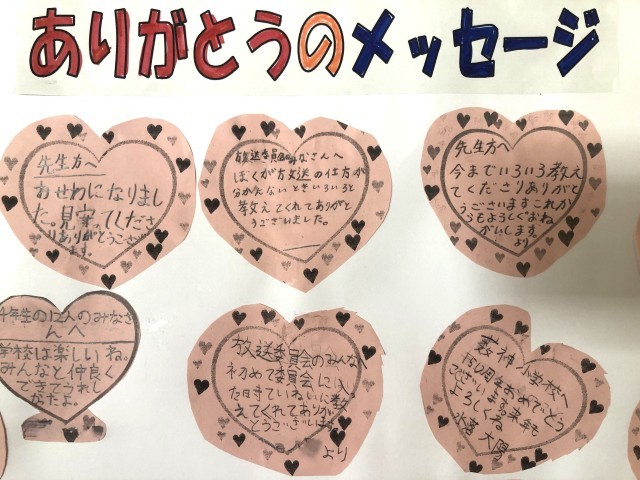 ありがとうのメッセージ
先生方へ
おせわになりまし
た。見守ってくださ
りありがとうござい
ます。
放送委員会のみなさんへ
ぼくが放送の仕方が
分からないときいろいろと
教えてくれてありがと
うございました。
先生方へ
今までいろいろ教え
てくださりありがと
うございますこれか
らもよろしくおね
がいします。
より
4年生の12人のみなさ
んへ
学校は楽しいね。
みんなと仲良く
できてうれし
かたよ。
放送委員会のみんなへ
初めて委員会に入っ
た時ていねいに教
えてくれてありが
とうございます。
より
薮神小学校へ
150周年おめでとう
ございます。
よろしくね